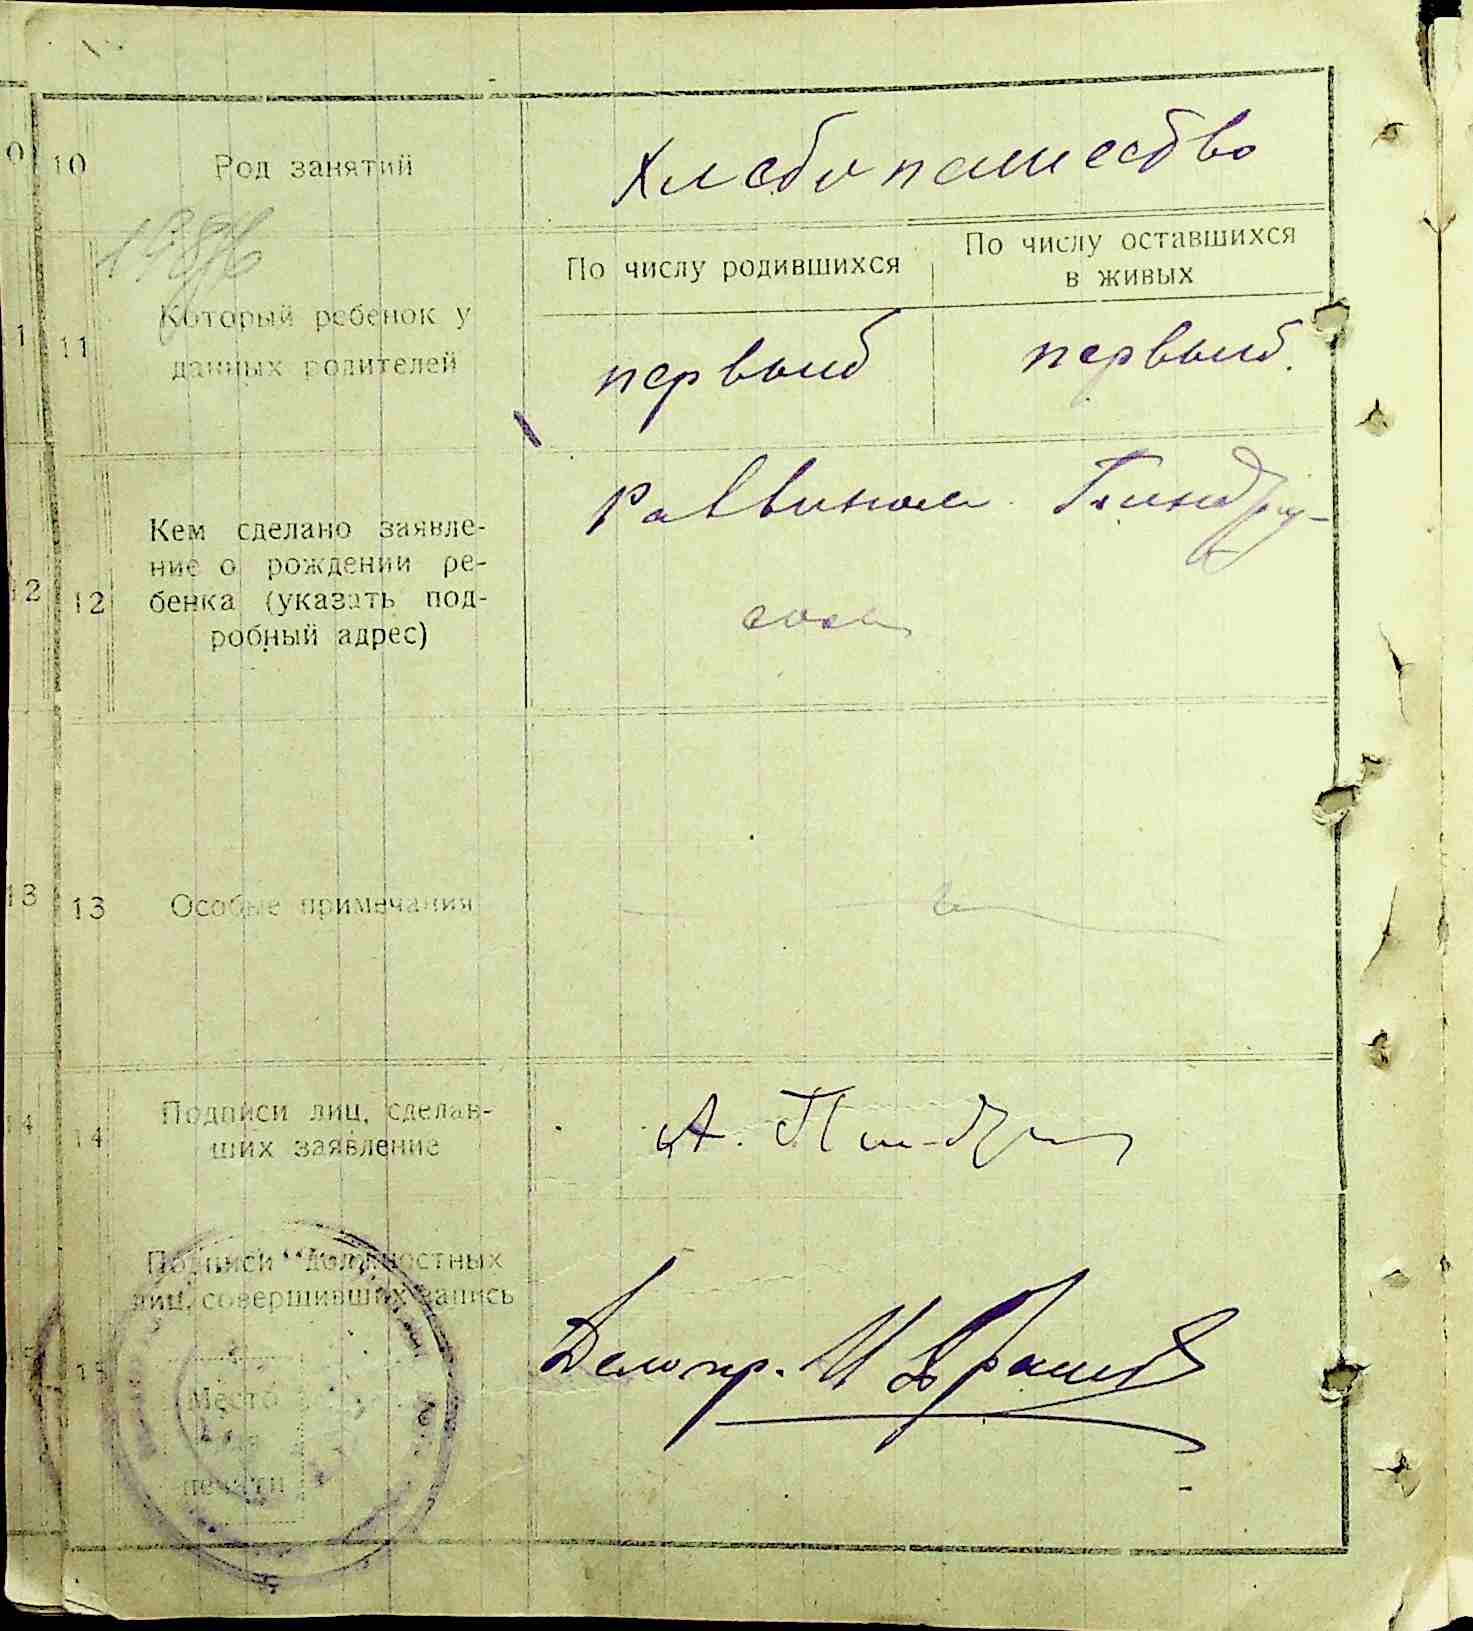 10 Род занятий Хлебопашество
11 Который ребенок у
данных родителей
По числу родившихся
По числу оставшихся
в живых
первый первый
12 Кем сделано заявле-
ние о рождении ре-
бенка (указать под-
робный адрес)
Раввином
13 Особые примечания
14 Подписи лиц, сделав-
ших заявление
А.
15 Подписи должностных
лиц, совершивших запись
Место
для
печати
Делопр.